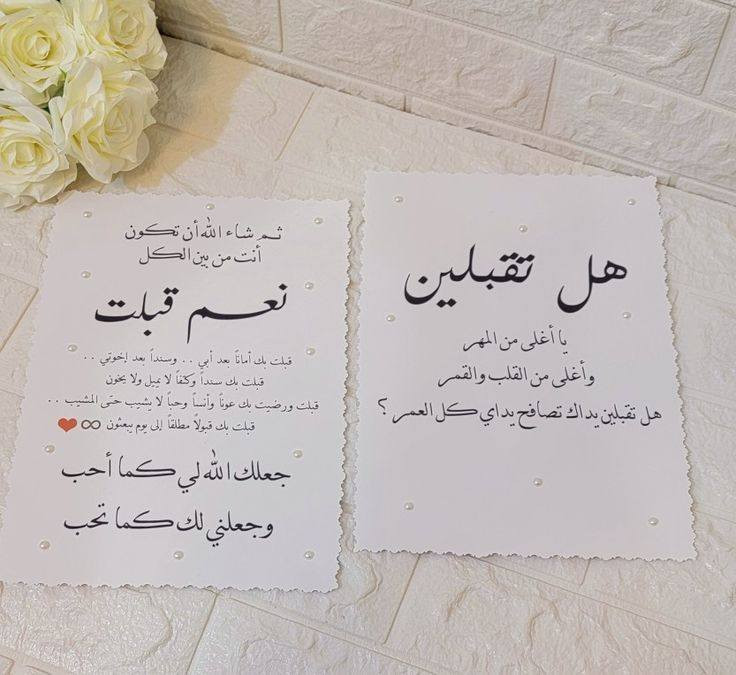 هل تقبلين
يا أغلى من المهر
وأغلى من القلب والقمر
هل تقبلين يداك تصافح يداي كل العمر ؟
ثم شاء الله أن تكون
أنت من بين الكل
نعم قبلت
قبلت بك أماناً بعد أبي . . وسنداً بعد إخوتي . .
قبلت بك سنداً وكتفاً لا يميل ولا يخون
قبلت ورضيت بك عوناً وأنساً وحباً لا يشيب حتى المشيب . .
قبلت بك قبولاً مطلقاً إلى يوم يبعثون ∞ ❤
جعلك الله لي كما أحب
وجعلني لك كما تحب